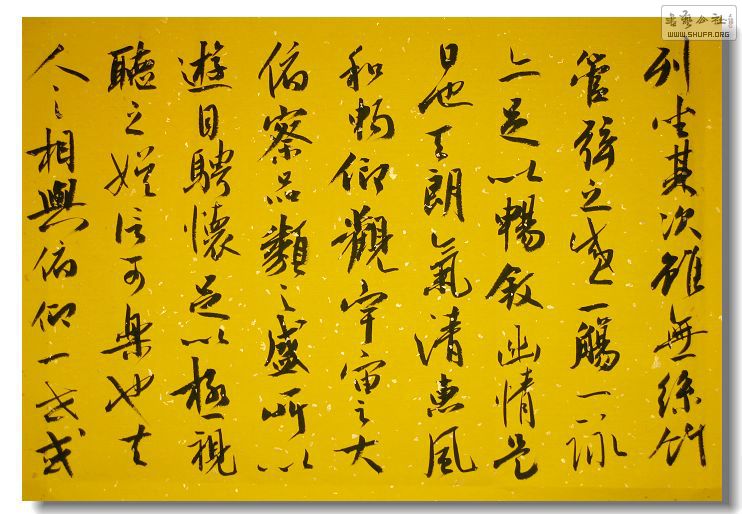 列坐其次雖無絲竹
管弦之盛一觴一詠
亦足以暢敘幽情是
日也天朗氣清惠風
和暢仰觀宇宙之大
俯察品類之盛所以
遊目騁懷足以極視
聽之娛信可樂也夫
人之相與俯仰一世或
書藝公社
WWW.SHUFA.ORG